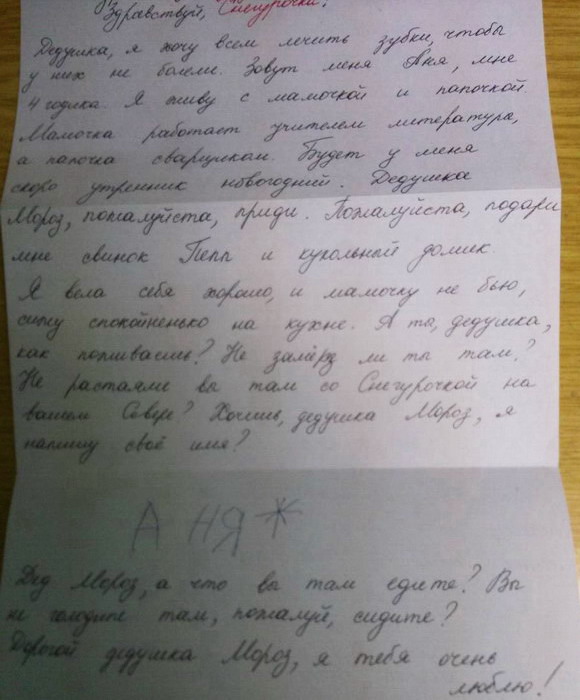 Здравствуй, Снегурочка!
Дедушка, я хочу всем лечить зубки, чтобы
у них не болели. Зовут меня Аня, мне
4 годика. Я живу с мамочкой и папочкой.
Мамочка работает учителем литература,
а папочка сварщиком. Будет у меня
скоро утренник новогодний. Дедушка
Мороз, пожалуйста, приди. Пожалуйста, подари
мне свинок Пепп и кукольный домик.
Я вела себя хорошо, и мамочку не бью,
сижу спокойненько на кухне. А ты, дедушка,
как поживаешь? Не замёрз ли ты там?
Не растаяли вы там со Снегурочкой на
вашем Севере? Хочешь, дедушка Мороз, я
напишу своё имя?
АНЯ
Дед Мороз, а что вы там едите? Вы
не голодные там, пожалуй, сидите?
Дорогой дедушка Мороз, я тебя очень
люблю!